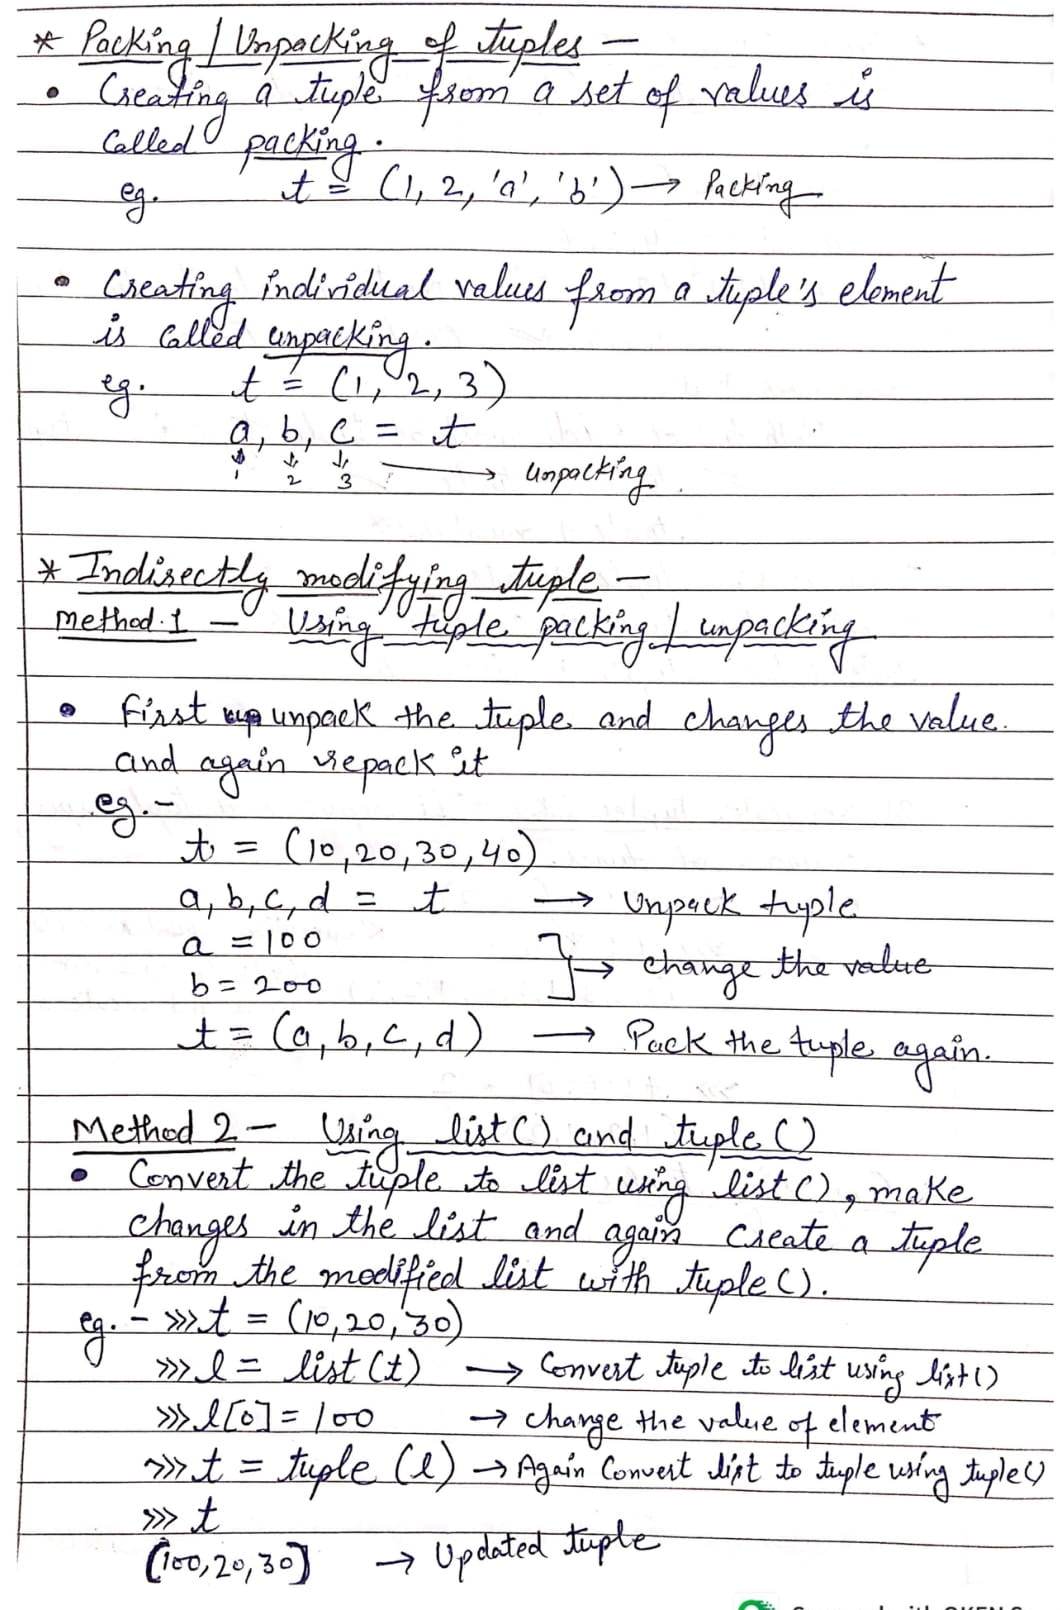 * Packing / Unpacking of tuples —
• Creating a tuple from a set of values is
called packing.
eg. t = (1, 2, 'a', 'b') → Packing
• Creating individual values from a tuple's element
is called unpacking.
eg. t = (1, 2, 3)
a, b, c = t
1 2 3 → unpacking
* Indirectly modifying tuple —
Method.1 — Using tuple packing / unpacking
• First unpack the tuple and changes the value.
and again repack it
eg.-
t = (10,20,30,40)
a, b, c, d = t → Unpack tuple
a = 100
b = 200 } → change the value
t = (a, b, c, d) → Pack the tuple again.
Method 2 — Using list() and tuple()
• Convert the tuple to list using list(), make
changes in the list and again create a tuple
from the modified list with tuple().
eg. - >>> t = (10,20,30)
>>> l = list(t) → Convert tuple to list using list()
>>> l[0] = 100 → change the value of element
>>> t = tuple (l) → Again convert list to tuple using tuple()
>>> t
(100,20,30] → Updated tuple